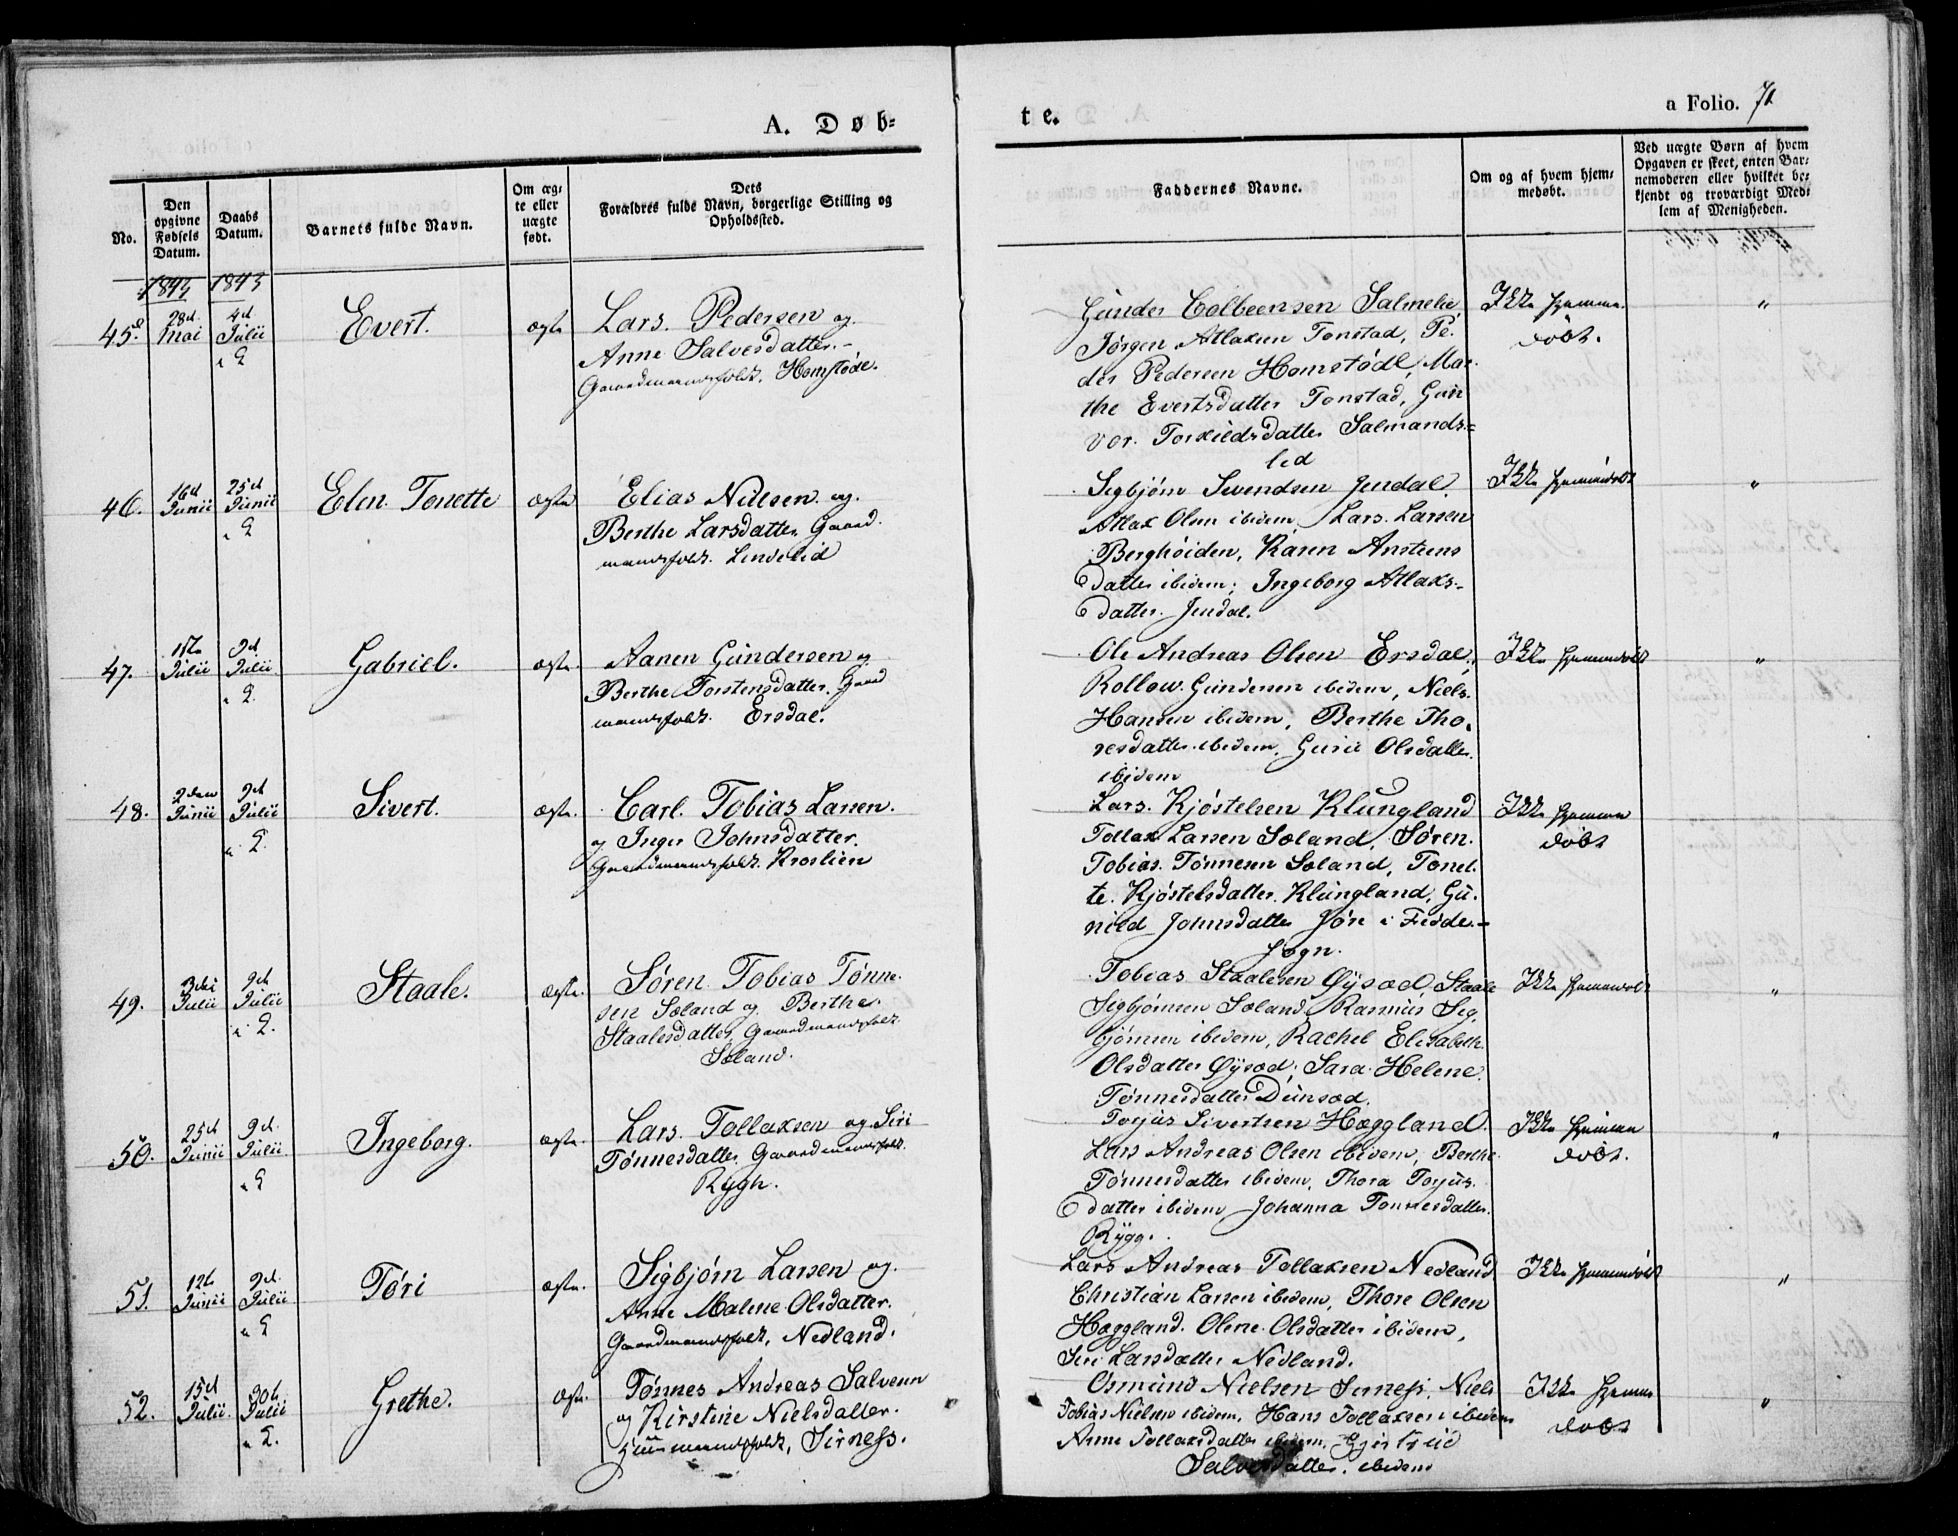 A. Døb-
te.
a Folio. 71
No.
Den
opgivne
Fødsels
Datum.
Daabs
Datum.
Barnets fulde Navn.
Om æg-
te eller
uægte
født.
Dets
Forældres fulde Navn, borgerlige Stilling og
Opholdssted.
Faddernes Navne.
Om og af hvem hjem-
medøbt.
Ved uægte Børn af hvem
Opgaven er skeet, enten Bar-
nemoderen eller hvilket be-
kjendt og troværdigt Med-
lem af Menigheden.
1843 1843
45. 28d Mai 4d Julii Evert. ægte Lars Pedersen og
Anne Salvesdatter
Gaardmandsfolk. Homstøde.
Gunder Salmelie,
Jørgen Atlaksen Tonstad, Pe-
der Pedersen Homstødl, Mar-
the Evertsdatter Tonstad, Gun
vor. Torkildsdatter Salmands-
lid
Ikke hjemme-
døbt.
"
46. 16d Junii 25d Junii Elen Tonette ægte Elias Nielsen og
Berthe Larsdatter, Gaard
mandsfolk. Lindelid
Sigbjørn Svendsen Jendal.
Atlak Olsen ibidem, Lars Larsen
Berghøiden, Karen Anstens
datter ibidem, Ingeborg Atlaks-
datter Jendal.
Ikke hjemmedøbt
"
47. 1ste Julii 9d Julii Gabriel. ægte. Aanen Gundersen og
Berthe Torstensdatter, Gaard
mandsfolk. Ersdal.
Ole Andreas Olsen Ersdal,
Rollow Gundersen ibidem, Niels
Hansen ibidem, Berthe Tho-
resdatter ibidem, Guri Olsdatter
ibidem
Ikke hjemmedøbt
"
48. 2den Junii 9d Julii Sivert. ægte. Carl Tobias Larsen
og Inger Johnsdatter.
Gaardmandsfolk. Kroslien
Lars Kjøstelsen Klungland
Tollak Larsen Soland, Søren
Tobias Tønnesen Soland, Tonet-
te Kjøstelsdatter Klungland, Gu-
nild Johnsdatter i Fedde-
Sogn.
Ikke hjemme
døbt
"
49. 3die Julii 9d Julii Staale. ægte. Søren Tobias Tønne-
sen Soland og Berthe
Staalesdatter, Gaardmandsfolk.
Soland.
Tobias Staalesen Øysæd, Staale
Sigbjørnsen Soland, Rasmus Sig-
bjørnsen ibidem, Rachel Elisabeth
Olsdatter Øysæd, Sara Helene
Tønnesdatter Dunsæd.
Ikke hjemmedøbt
"
50. 25d Junii 9d. Julii Ingeborg. ægte. Lars Tollaksen og Siri
Tønnesdatter, Gaardmandsfolk.
Rygh.
Torjus Sivertsen Hæggland.
Lars Andreas Olsen ibidem, Berthe
Tønnesdatter ibidem, Thora Torjus-
datter ibidem Johanna Tønnesdatter
Rygg.
Ikke hjemme
døbt.
"
51. 12te Junii 9d. Julii Tøri ægte. Sigbjørn Larsen og
Anne Malene Olsdatter.
Gaardmandsfolk, Nedland.
Lars Andreas Tollaksen Nedland
Christian Larsen ibidem, Thore Olsen
Hæggland. Olene Olsdatter ibidem,
Siri Larsdatter Nedland.
Ikke hjemmedøbt
"
52. 15d Julii. 30te Julii Grethe. ægte. Tønnes Andreas Salvesen
og Kirstine Nielsdatter.
Huusmandsfolk, Sirness.
Osmund Nielsen Sirness, Niels
Tobias Nielsen ibidem, Hans Tollaksen ibidem
Anne Tollaksdatter ibidem, Gjertrud
Salvesdatter, ibidem
Ikke hjemme
døbt
"